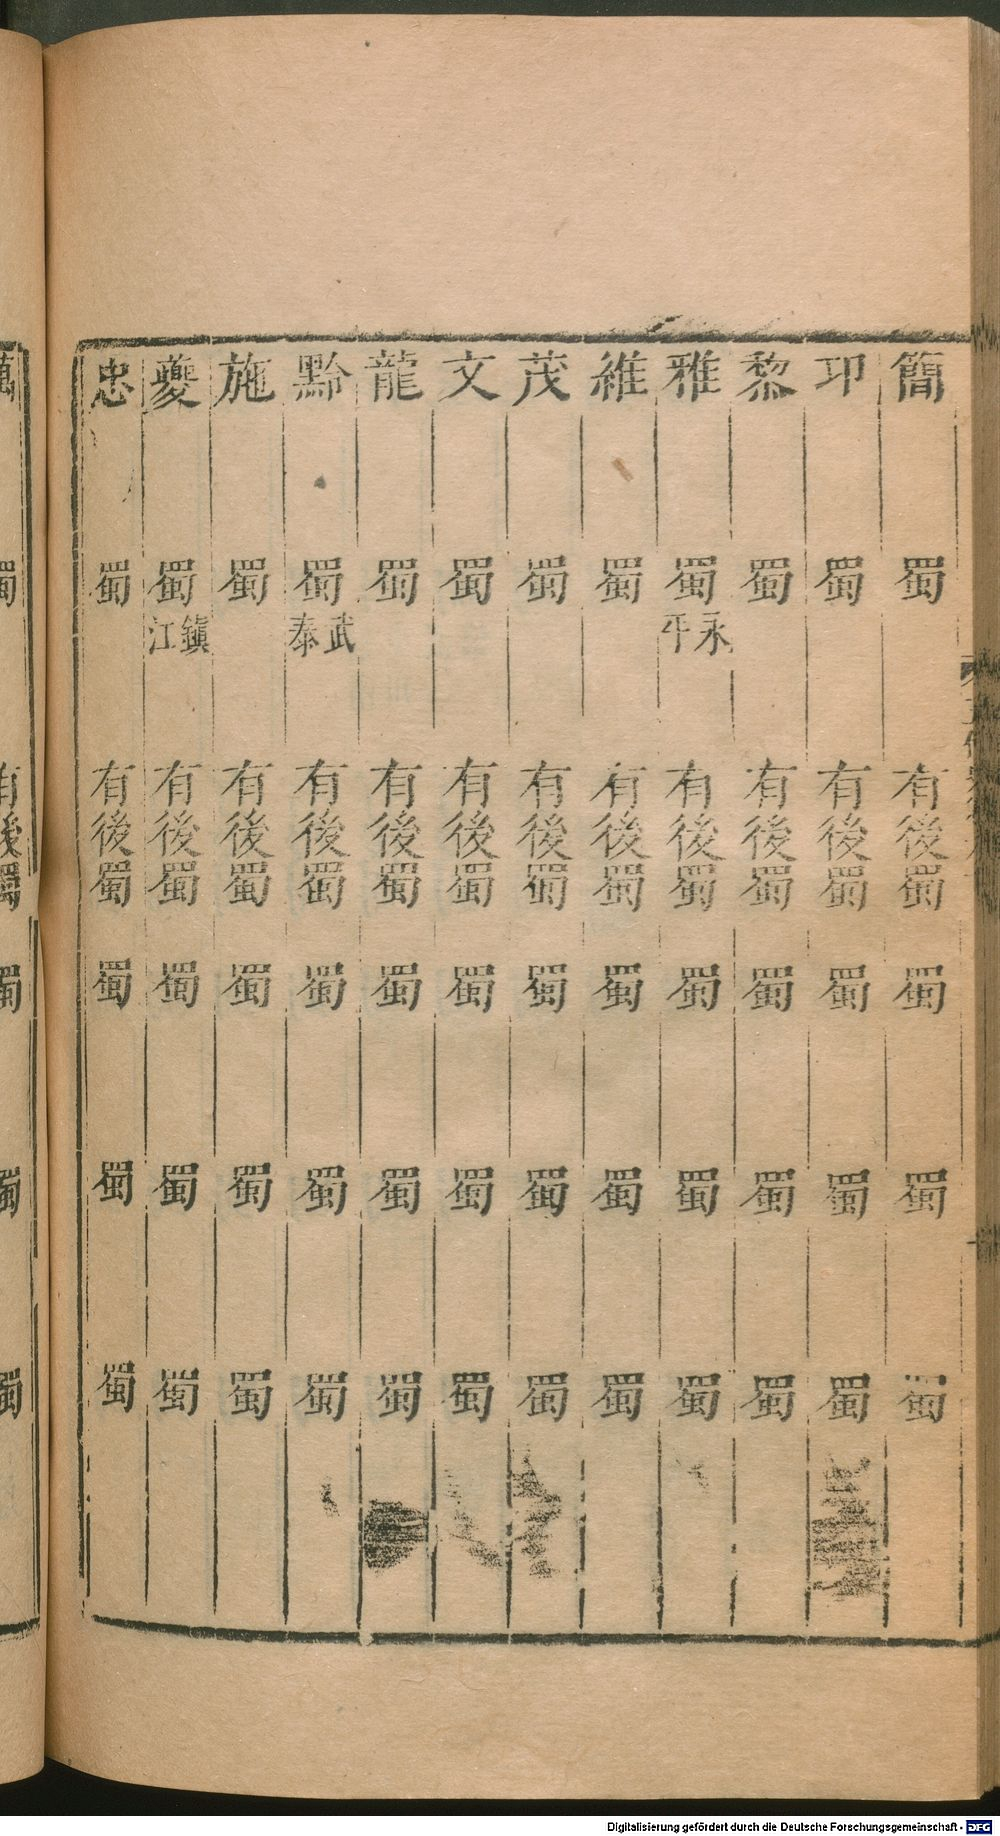 簡 蜀 有後蜀 蜀 蜀 蜀
卭 蜀 有後蜀 蜀 蜀 蜀
黎 蜀 有後蜀 蜀 蜀 蜀
雅 蜀永平 有後蜀 蜀 蜀 蜀
維 蜀 有後蜀 蜀 蜀 蜀
茂 蜀 有後蜀 蜀 蜀 蜀
文 蜀 有後蜀 蜀 蜀 蜀
龍 蜀 有後蜀 蜀 蜀 蜀
黔 蜀武泰 有後蜀 蜀 蜀 蜀
施 蜀 有後蜀 蜀 蜀 蜀
夔 蜀鎮江 有後蜀 蜀 蜀 蜀
忠 蜀 有後蜀 蜀 蜀 蜀
萬 蜀 有後蜀 蜀 蜀 蜀
Digitalisierung gefördert durch die Deutsche Forschungsgemeinschaft - DFG